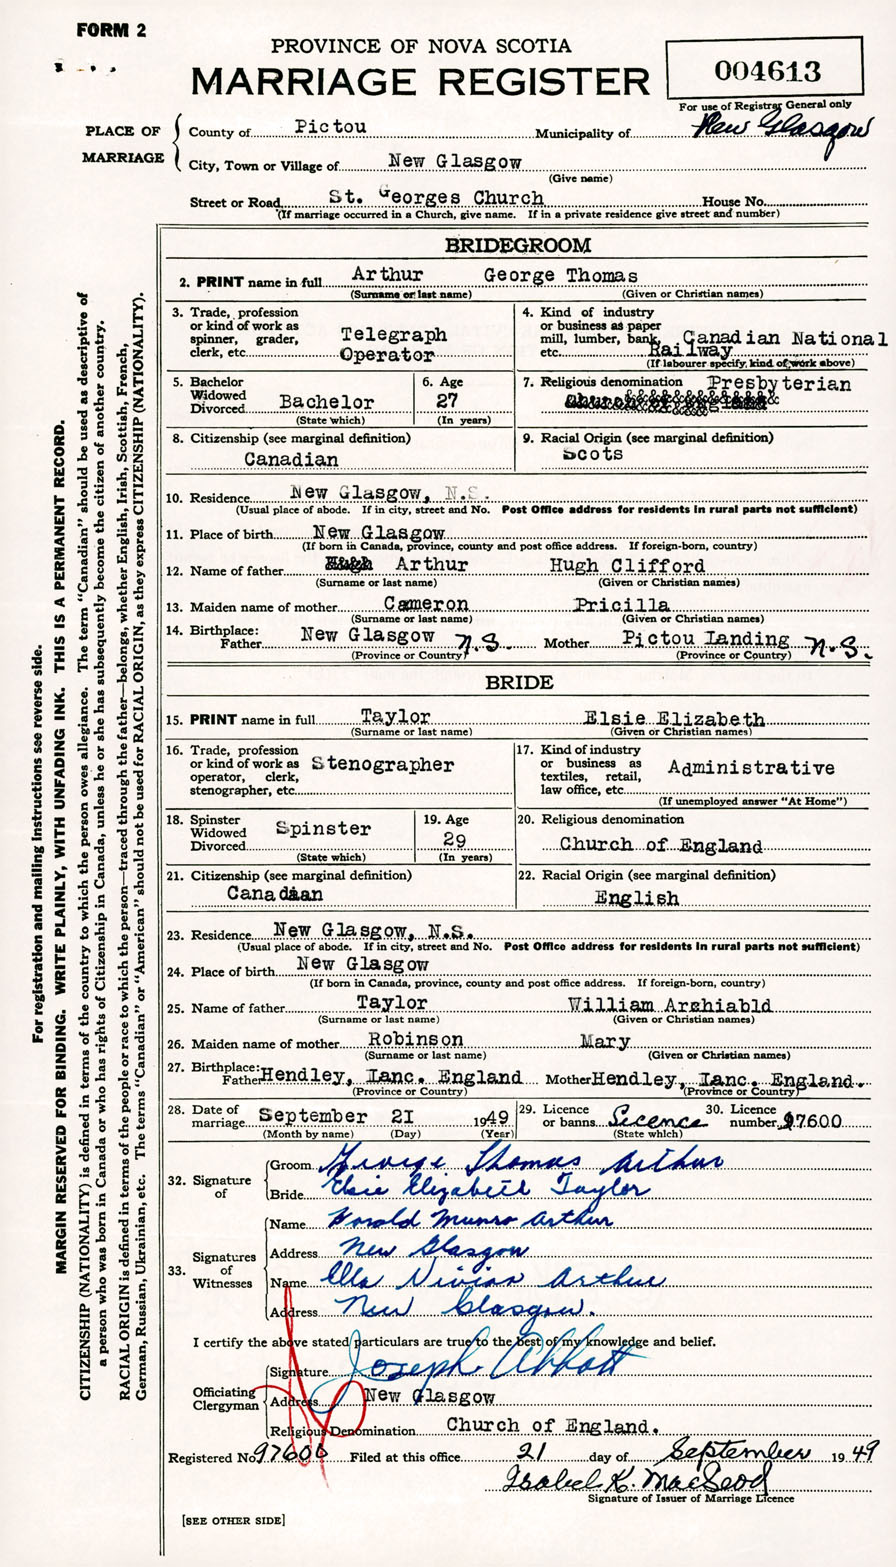 FORM 2
PROVINCE OF NOVA SCOTIA
MARRIAGE REGISTER
004613
For use of Registrar General only
PLACE OF MARRIAGE
County of Pictou Municipality of New Glasgow
City, Town or Village of New Glasgow
(Give name)
Street or Road St. Georges Church House No.
(If marriage occurred in a Church, give name. If in a private residence give street and number)
BRIDEGROOM
2. PRINT name in full Arthur George Thomas
(Surname or last name) (Given or Christian names)
3. Trade, profession or kind of work as spinner, grader, clerk, etc. Telegraph Operator
4. Kind of industry or business as paper mill, lumber, bank, etc. Canadian National Railway
(If labourer specify kind of work above)
5. Bachelor Widowed Divorced Bachelor
(State which)
6. Age 27
(In years)
7. Religious denomination Presbyterian
8. Citizenship (see marginal definition)
Canadian
9. Racial Origin (see marginal definition)
Scots
10. Residence New Glasgow, N.S.
(Usual place of abode. If in city, street and No. Post Office address for residents in rural parts not sufficient)
11. Place of birth New Glasgow
(If born in Canada, province, county and post office address. If foreign-born, country)
12. Name of father Arthur Hugh Clifford
(Surname or last name) (Given or Christian names)
13. Maiden name of mother Cameron Pricilla
(Surname or last name) (Given or Christian names)
14. Birthplace: Father New Glasgow N.S. Mother Pictou Landing N.S.
(Province or Country) (Province or Country)
BRIDE
15. PRINT name in full Taylor Elsie Elizabeth
(Surname or last name) (Given or Christian names)
16. Trade, profession or kind of work as operator, clerk, stenographer, etc. Stenographer
17. Kind of industry or business as textiles, retail, law office, etc. Administrative
(If unemployed answer "At Home")
18. Spinster Widowed Divorced Spinster
(State which)
19. Age 29
(In years)
20. Religious denomination
Church of England
21. Citizenship (see marginal definition)
Canadian
22. Racial Origin (see marginal definition)
English
23. Residence New Glasgow, N.S.
(Usual place of abode. If in city, street and No. Post Office address for residents in rural parts not sufficient)
24. Place of birth New Glasgow
(If born in Canada, province, county and post office address. If foreign-born, country)
25. Name of father Taylor William Archiabld
(Surname or last name) (Given or Christian names)
26. Maiden name of mother Robinson Mary
(Surname or last name) (Given or Christian names)
27. Birthplace: Father Hendley, Lanc. England Mother Hendley, Lanc. England.
(Province or Country) (Province or Country)
28. Date of marriage September 21 1949
(Month by name) (Day) (Year)
29. Licence or banns Licence
(State which)
30. Licence number 97600
32. Signature of
Groom George Thomas Arthur
Bride Elsie Elizabeth Taylor
33. Signatures of Witnesses
Name Harold Munro Arthur
Address New Glasgow
Name Ella Vivian Arthur
Address New Glasgow.
I certify the above stated particulars are true to the best of my knowledge and belief.
Officiating Clergyman
Signature Joseph Abbott
Address New Glasgow
Religious Denomination Church of England.
Registered No. 97600 Filed at this office 21 day of September 1949
Isabel K. MacLeod
Signature of Issuer of Marriage Licence
[SEE OTHER SIDE]
For registration and mailing instructions see reverse side.
MARGIN RESERVED FOR BINDING. WRITE PLAINLY, WITH UNFADING INK. THIS IS A PERMANENT RECORD.
CITIZENSHIP (NATIONALITY) is defined in terms of the country to which the person owes allegiance. The term "Canadian" should be used as descriptive of
a person who was born in Canada or who has rights of Citizenship in Canada, unless he or she has subsequently become the citizen of another country.
RACIAL ORIGIN is defined in terms of the people or race to which the person—traced through the father—belongs, whether English, Irish, Scottish, French,
German, Russian, Ukrainian, etc. The terms "Canadian" or "American" should not be used for RACIAL ORIGIN, as they express CITIZENSHIP (NATIONALITY).